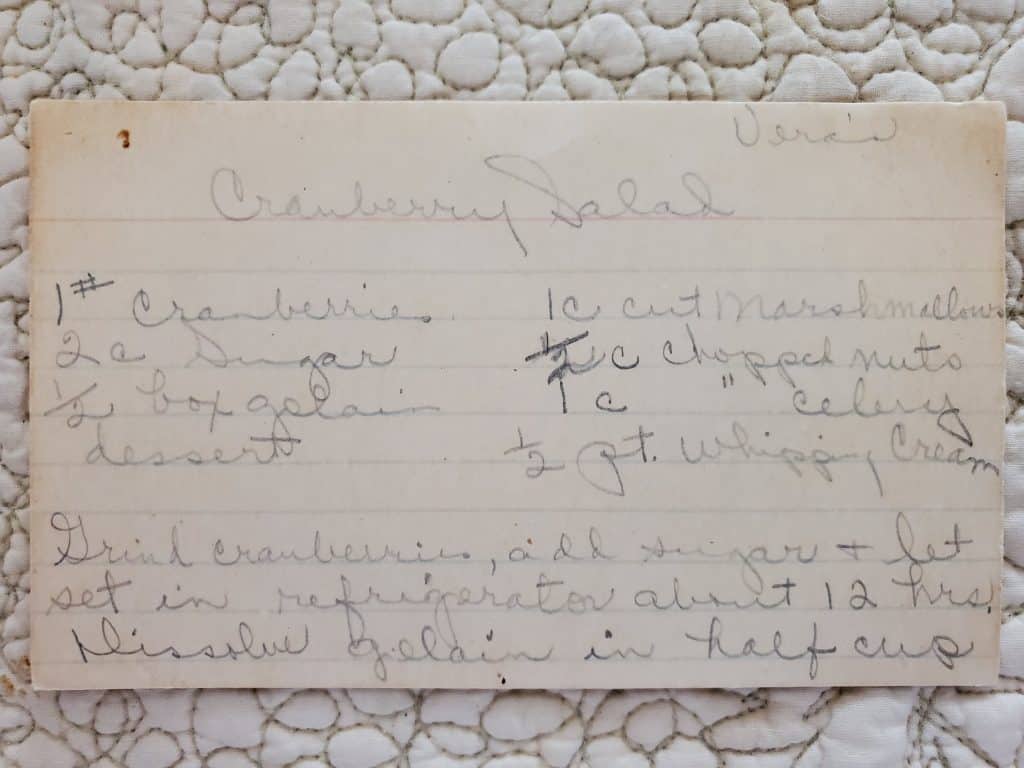 Vera's
Cranberry Salad
1# Cranberries
2 c Sugar
1/2 box gelain
dessert
1 c cut Marshmallows
1/2 c chopped nuts
1 c " celery
1/2 pt. Whipping Cream
Grind cranberries, add sugar + let
set in refrigerator about 12 hrs.
Dissolve gelain in half cup